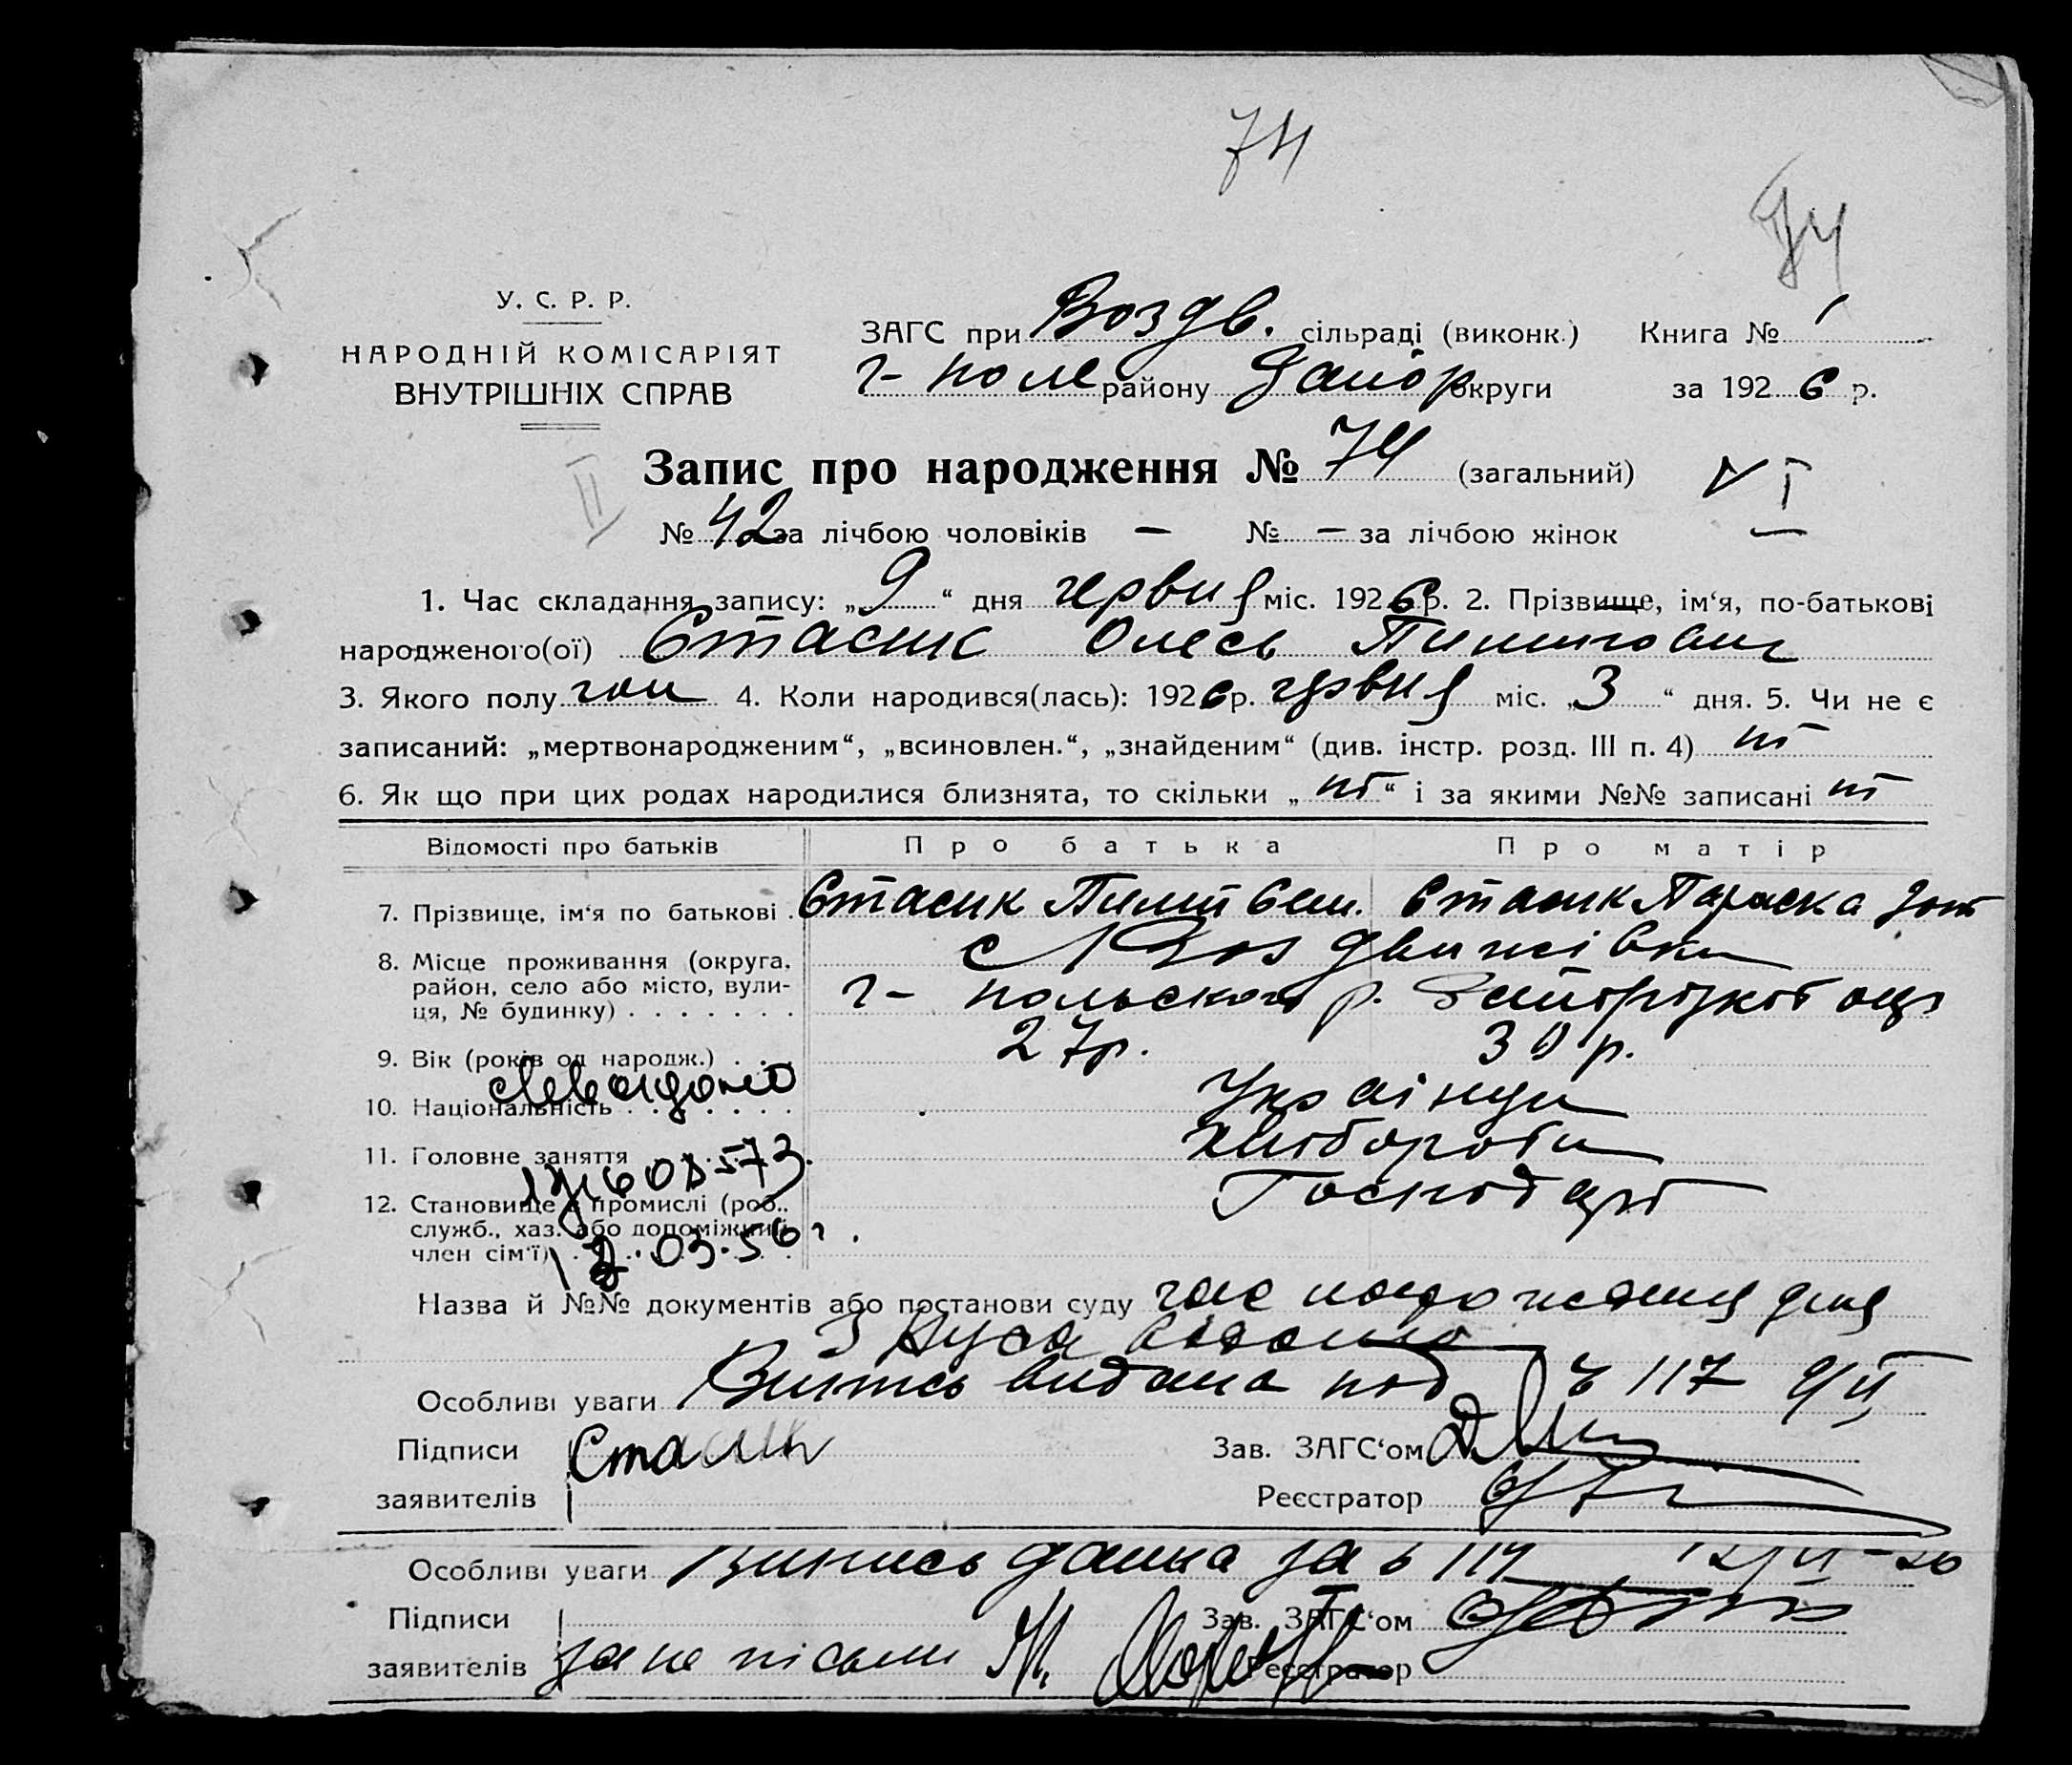 74
74
У. С. Р. Р.
НАРОДНІЙ КОМІСАРІЯТ
ВНУТРІШНІХ СПРАВ
ЗАГС при Воздв. сільраді (виконк.) Книга № 1
г- поле району Запор округи за 1926 р.
Запис про народження № 74 (загальний)
II
№ 42 за лічбою чоловіків — № — за лічбою жінок
1. Час складання запису: „9“ дня червня міс. 1926 р. 2. Прізвище, ім‘я, по-батькові
народженого(ої) Стасик Олесь Пилипович
3. Якого полу чол 4. Коли народився(лась): 1926 р. червня міс. „3“ дня. 5. Чи не є
записаний: „мертвонародженим“, „всиновлен.“, „знайденим“ (див. інстр. розд. III п. 4) ні
6. Як що при цих родах народилися близнята, то скільки „ні“ і за якими №№ записані ні
Відомості про батьків Про батька Про матір
7. Прізвище, ім‘я по батькові . Стасик Пилип Стасик Параска
8. Місце проживання (округа, с Воздвижівки
район, село або місто, вули- г- польского р.
ця, № будинку) . . . . . . .
9. Вік (років од народж.) . . . 27р. 30 р.
10. Національність . . . . . . . Українци
11. Головне заняття хлібороби
12. Становище в промислі (роб.. Господарі
служб., хаз. або допоміжний
член сім‘ї) . . . 03.56г.
Назва й №№ документів або постанови суду
Особливі уваги Випись видана под № 117 9/VI
Підписи Стасик Зав. ЗАГС‘ом
заявителів Реєстратор
Особливі уваги Випись данна за № 114
Підписи Зав. ЗАГС‘ом
заявителів за не письм Реєстратор